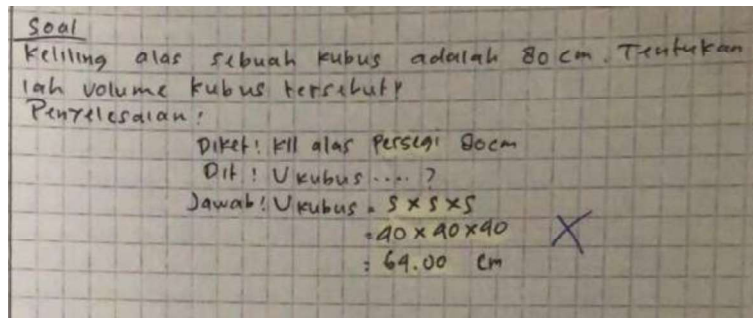 Soal
Keliling alas sebuah kubus adalah 80 cm. Tentukan
lah volume kubus tersebut!
Penyelesaian:
Diket: Kll alas Persegi 80cm
Dit: V kubus .... ?
Jawab: V kubus = S x S x S
= 40 x 40 x 40
= 64.00 cm